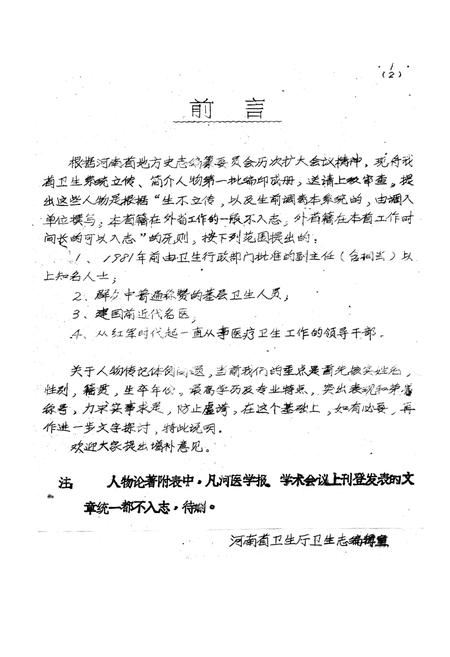 1
(2)
前言
根据河南省地方史志编纂委员会历次扩大会议精神，现将我
省卫生系统立传、简介人物第一批编印成册，送请上级审查。提
出这些人物是根据“生不立传，以及生前调离本系统的，由调入
单位撰写；本省籍在外省工作的一般不入志，外省籍在本省工作时
间长的可以入志”的原则，按下列范围提出的：
1、1981年前由卫生行政部门批准的副主任（含相当）以
上知名人士；
2、群众中普遍称赞的基层卫生人员；
3、建国前近代名医；
4、从红军时代起一直从事医疗卫生工作的领导干部。
关于人物传记体例问题，当前我们的重点是首先做实姓名，
性别，籍贯，生卒年份，最高学历及专业特点，突出表现和荣誉
称号，力求实事求是，防止虚夸，在这个基础上，如有必要，再
作进一步文字探讨，特此说明。
欢迎大家提出增补意见。
注 人物论著附表中，凡河医学报、学术会议上刊登发表的文
章统一都不入志，待删。
河南省卫生厅卫生志编辑室